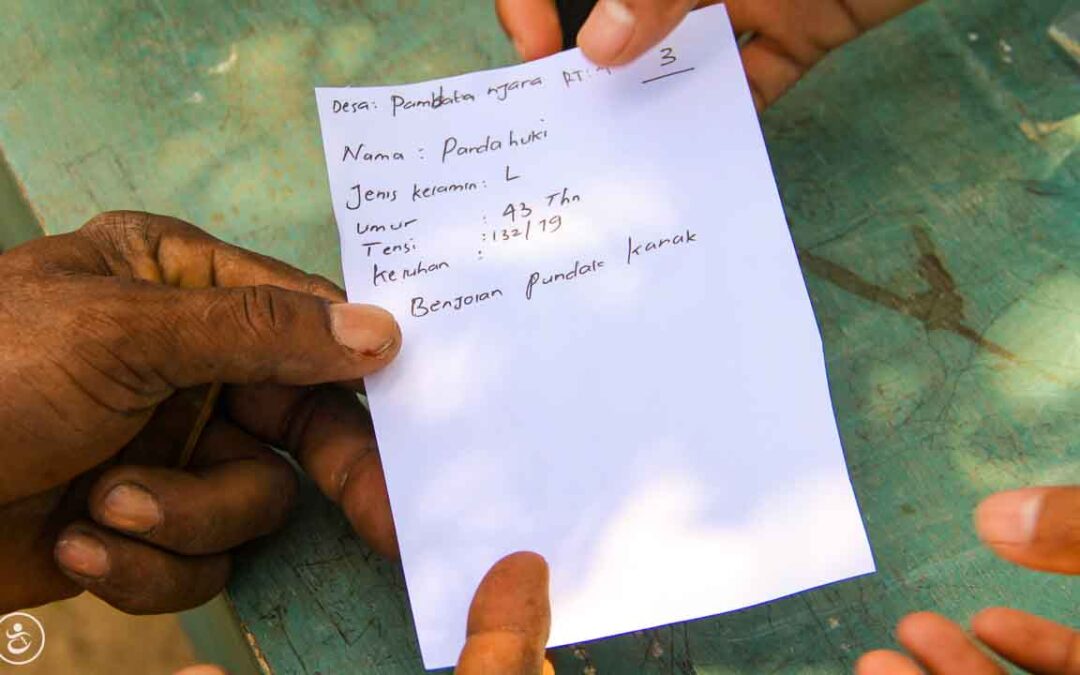 3
Desa: Pambata njara RT:
Nama : Pardahuki
Jenis keramin: L
Umur : 43 Thn
Tensi : 132/79
Keruhan :
Benjoran pundak kanak